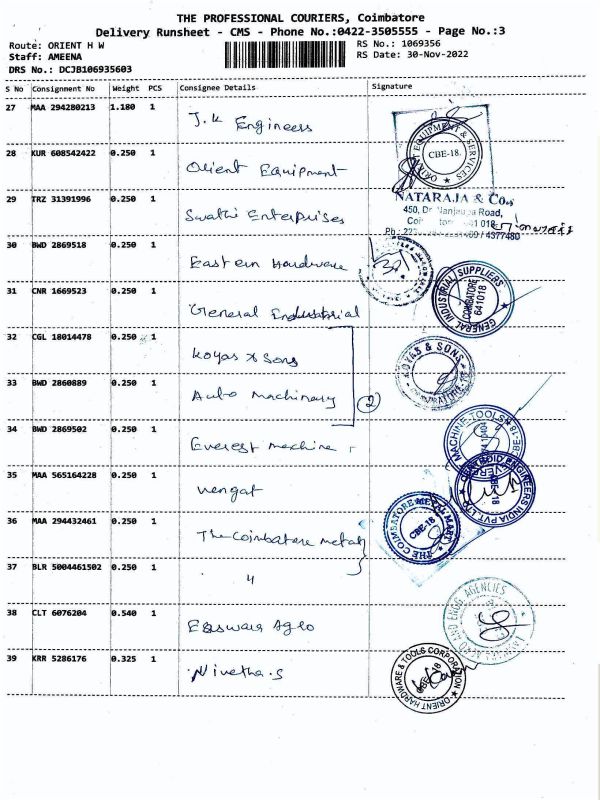 THE PROFESSIONAL COURIERS, Coimbatore
Delivery Runsheet - CMS - Phone No.:0422-3505555 - Page No.:3
Route: ORIENT H W
RS No.: 1069356
Staff: AMEENA
RS Date: 30-Nov-2022
DRS No.: DCJB106935603
S No Consignment No Weight PCS Consignee Details Signature
27 MAA 294280213 1.180 1 J.K Engineers
EQUIPMENT & SERVICES
CBE-18.
28 KUR 608542422 0.250 1 Orient Equipment
29 TRZ 31391996 0.250 1 Swathi Enterprises
NATARAJA & Co.,
450, Dr. Nanjappa Road,
30 BWD 2869518 0.250 1 Eastern Hardware
31 CNR 1669523 0.250 1 General Industrial
GENERAL INDUSTRIAL SUPPLIERS
COIMBATORE
641018
32 CGL 18014478 0.250 1 Koyas & Sons
KOYAS & SONS
33 BWD 2860889 0.250 1 Auto Machinery
2
34 BWD 2869502 0.250 1 Everest machine
MACHINE-TOOLS
35 MAA 565164228 0.250 1
ENGINEERS INDIA PVT.LTD
36 MAA 294432461 0.250 1 The Coimbatore metal
THE COIMBATORE METAL MART
CBE-18
37 BLR 5004461502 0.250 1 4
38 CLT 6076204 0.540 1
AGRO AND ENGG. AGENCIES
39 KRR 5286176 0.325 1 Nivetha.S
ORIENT HARDWARE & TOOLS CORPORATION
CBE-18